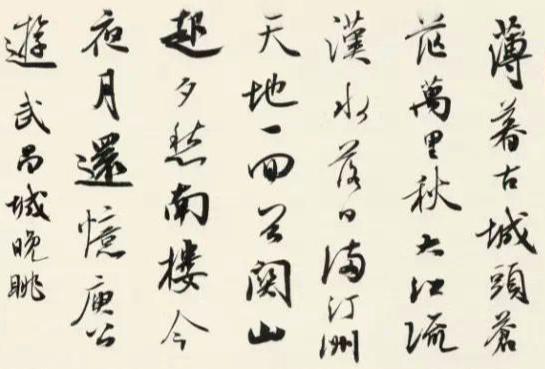 薄暮古城頭蒼
茫萬里秋大江流
漢水落日滿汀洲
天地一回首關山
起夕愁南樓今
夜月還憶庾公
遊 武昌城晚眺